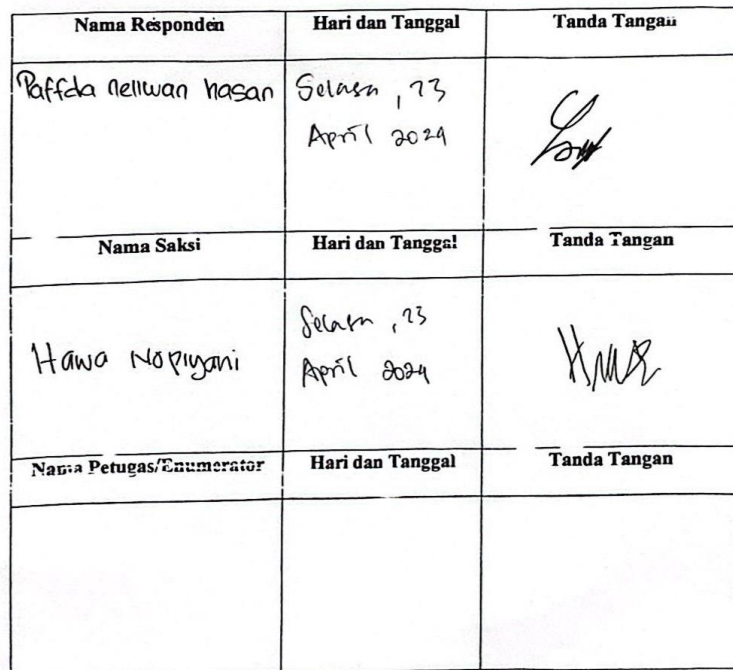 Nama Responden Hari dan Tanggal Tanda Tangan
Paffda nellwan hasan Selasa, 23
April 2024
Nama Saksi Hari dan Tanggal Tanda Tangan
Hawa Nopiyani Selasa, 23
April 2024
Nama Petugas/Enumerator Hari dan Tanggal Tanda Tangan